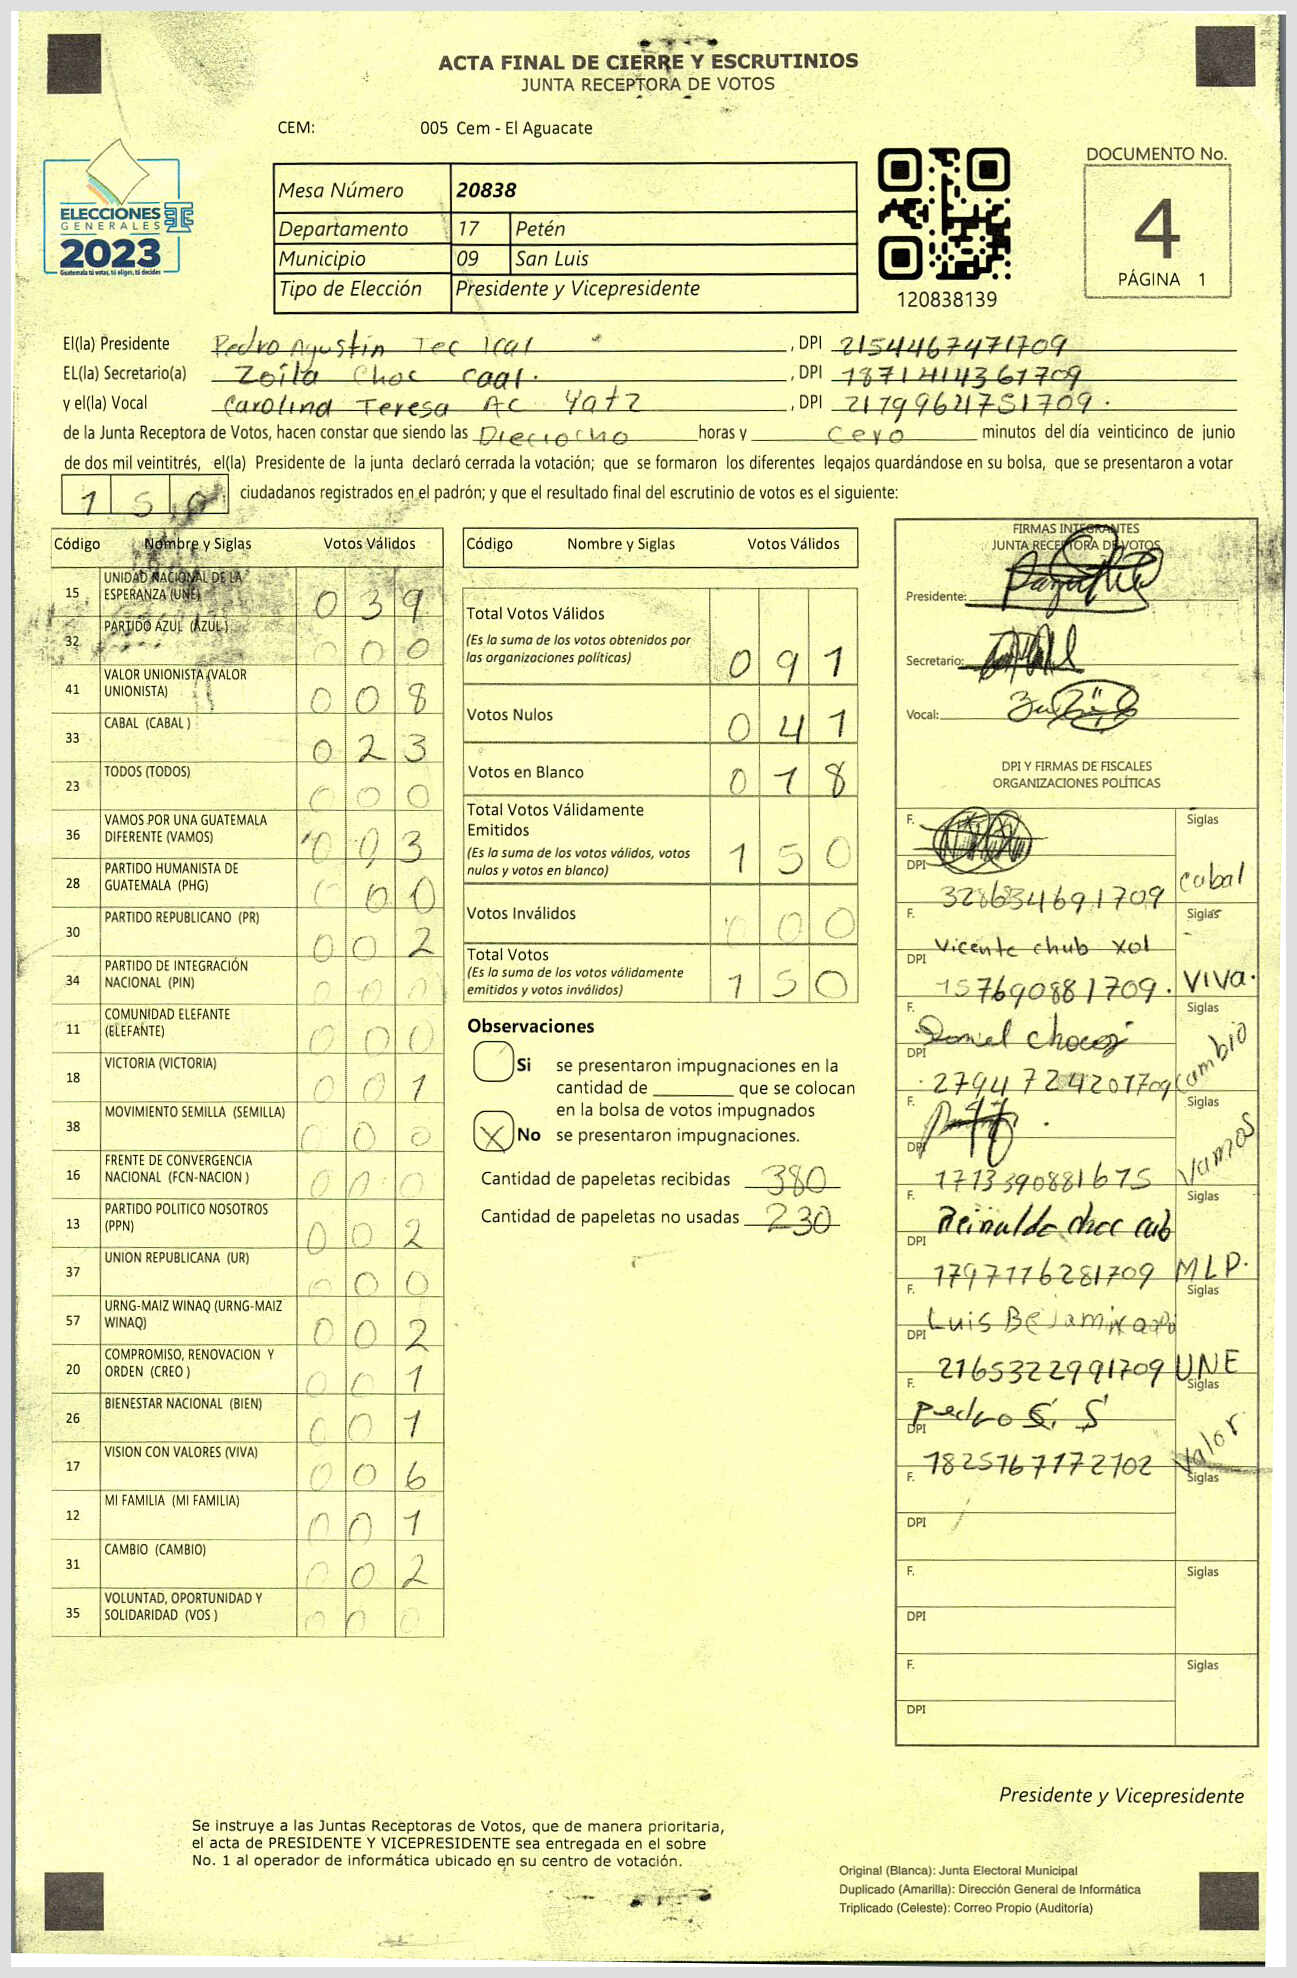 ACTA FINAL DE CIERRE Y ESCRUTINIOS
JUNTA RECEPTORA DE VOTOS
CEM: 005 Cem - El Aguacate
ELECCIONES
GENERALES
2023
Guatemala tú votas, tú eliges, tú decides
Mesa Número 20838
Departamento 17 Petén
Municipio 09 San Luis
Tipo de Elección Presidente y Vicepresidente
120838139
DOCUMENTO No.
4
PÁGINA 1
El(la) Presidente Pedro Agustin Tec Ical , DPI 2154467471709
EL(la) Secretario(a) Zoila Choc Caal. , DPI 1871414361709
y el(la) Vocal Carolina Teresa Ac Yatz , DPI 2179962751709.
de la Junta Receptora de Votos, hacen constar que siendo las Dieciocho horas y cero minutos del día veinticinco de junio
de dos mil veintitrés, el(la) Presidente de la junta declaró cerrada la votación; que se formaron los diferentes legajos guardándose en su bolsa, que se presentaron a votar
1 5 0 ciudadanos registrados en el padrón; y que el resultado final del escrutinio de votos es el siguiente:
Código Nombre y Siglas Votos Válidos
15 UNIDAD NACIONAL DE LA ESPERANZA (UNE) 0 3 9
32 PARTIDO AZUL (AZUL) 0 0 0
41 VALOR UNIONISTA (VALOR UNIONISTA) 0 0 8
33 CABAL (CABAL ) 0 2 3
23 TODOS (TODOS) 0 0 0
36 VAMOS POR UNA GUATEMALA DIFERENTE (VAMOS) 0 0 3
28 PARTIDO HUMANISTA DE GUATEMALA (PHG) 0 0 0
30 PARTIDO REPUBLICANO (PR) 0 0 2
34 PARTIDO DE INTEGRACIÓN NACIONAL (PIN) 0 0 0
11 COMUNIDAD ELEFANTE (ELEFANTE) 0 0 0
18 VICTORIA (VICTORIA) 0 0 1
38 MOVIMIENTO SEMILLA (SEMILLA) 0 0 0
16 FRENTE DE CONVERGENCIA NACIONAL (FCN-NACION ) 0 0 0
13 PARTIDO POLITICO NOSOTROS (PPN) 0 0 2
37 UNION REPUBLICANA (UR) 0 0 0
57 URNG-MAIZ WINAQ (URNG-MAIZ WINAQ) 0 0 2
20 COMPROMISO, RENOVACION Y ORDEN (CREO ) 0 0 1
26 BIENESTAR NACIONAL (BIEN) 0 0 1
17 VISION CON VALORES (VIVA) 0 0 6
12 MI FAMILIA (MI FAMILIA) 0 0 1
31 CAMBIO (CAMBIO) 0 0 2
35 VOLUNTAD, OPORTUNIDAD Y SOLIDARIDAD (VOS ) 0 0 0
Código Nombre y Siglas Votos Válidos
Total Votos Válidos 0 9 1
(Es la suma de los votos obtenidos por
las organizaciones políticas)
Votos Nulos 0 4 1
Votos en Blanco 0 1 8
Total Votos Válidamente
Emitidos 1 5 0
(Es la suma de los votos válidos, votos
nulos y votos en blanco)
Votos Inválidos 0 0 0
Total Votos 1 5 0
(Es la suma de los votos válidamente
emitidos y votos inválidos)
Observaciones
Si se presentaron impugnaciones en la
cantidad de ________ que se colocan
en la bolsa de votos impugnados
X No se presentaron impugnaciones.
Cantidad de papeletas recibidas 380
Cantidad de papeletas no usadas 230
FIRMAS INTEGRANTES
JUNTA RECEPTORA DE VOTOS
Presidente:
Secretario:
Vocal:
DPI Y FIRMAS DE FISCALES
ORGANIZACIONES POLÍTICAS
F. Siglas
DPI 3286346911709 Cabal
F. Vicente chub xol Siglas
DPI 1576908811709. VIVA.
F. Daniel Siglas
DPI 2794724201709 Cambio
F. Siglas
DPI 1713390881675 Vamos
F. Reinaldo choc cub Siglas
DPI 1797116281709 MLP.
F. Luis Siglas
DPI 2165322991709 UNE
F. Pedro S. S Siglas
DPI 1825767172102 Valor
F. Siglas
DPI
F. Siglas
DPI
F. Siglas
DPI
Presidente y Vicepresidente
Se instruye a las Juntas Receptoras de Votos, que de manera prioritaria,
el acta de PRESIDENTE Y VICEPRESIDENTE sea entregada en el sobre
No. 1 al operador de informática ubicado en su centro de votación.
Original (Blanca): Junta Electoral Municipal
Duplicado (Amarilla): Dirección General de Informática
Triplicado (Celeste): Correo Propio (Auditoría)